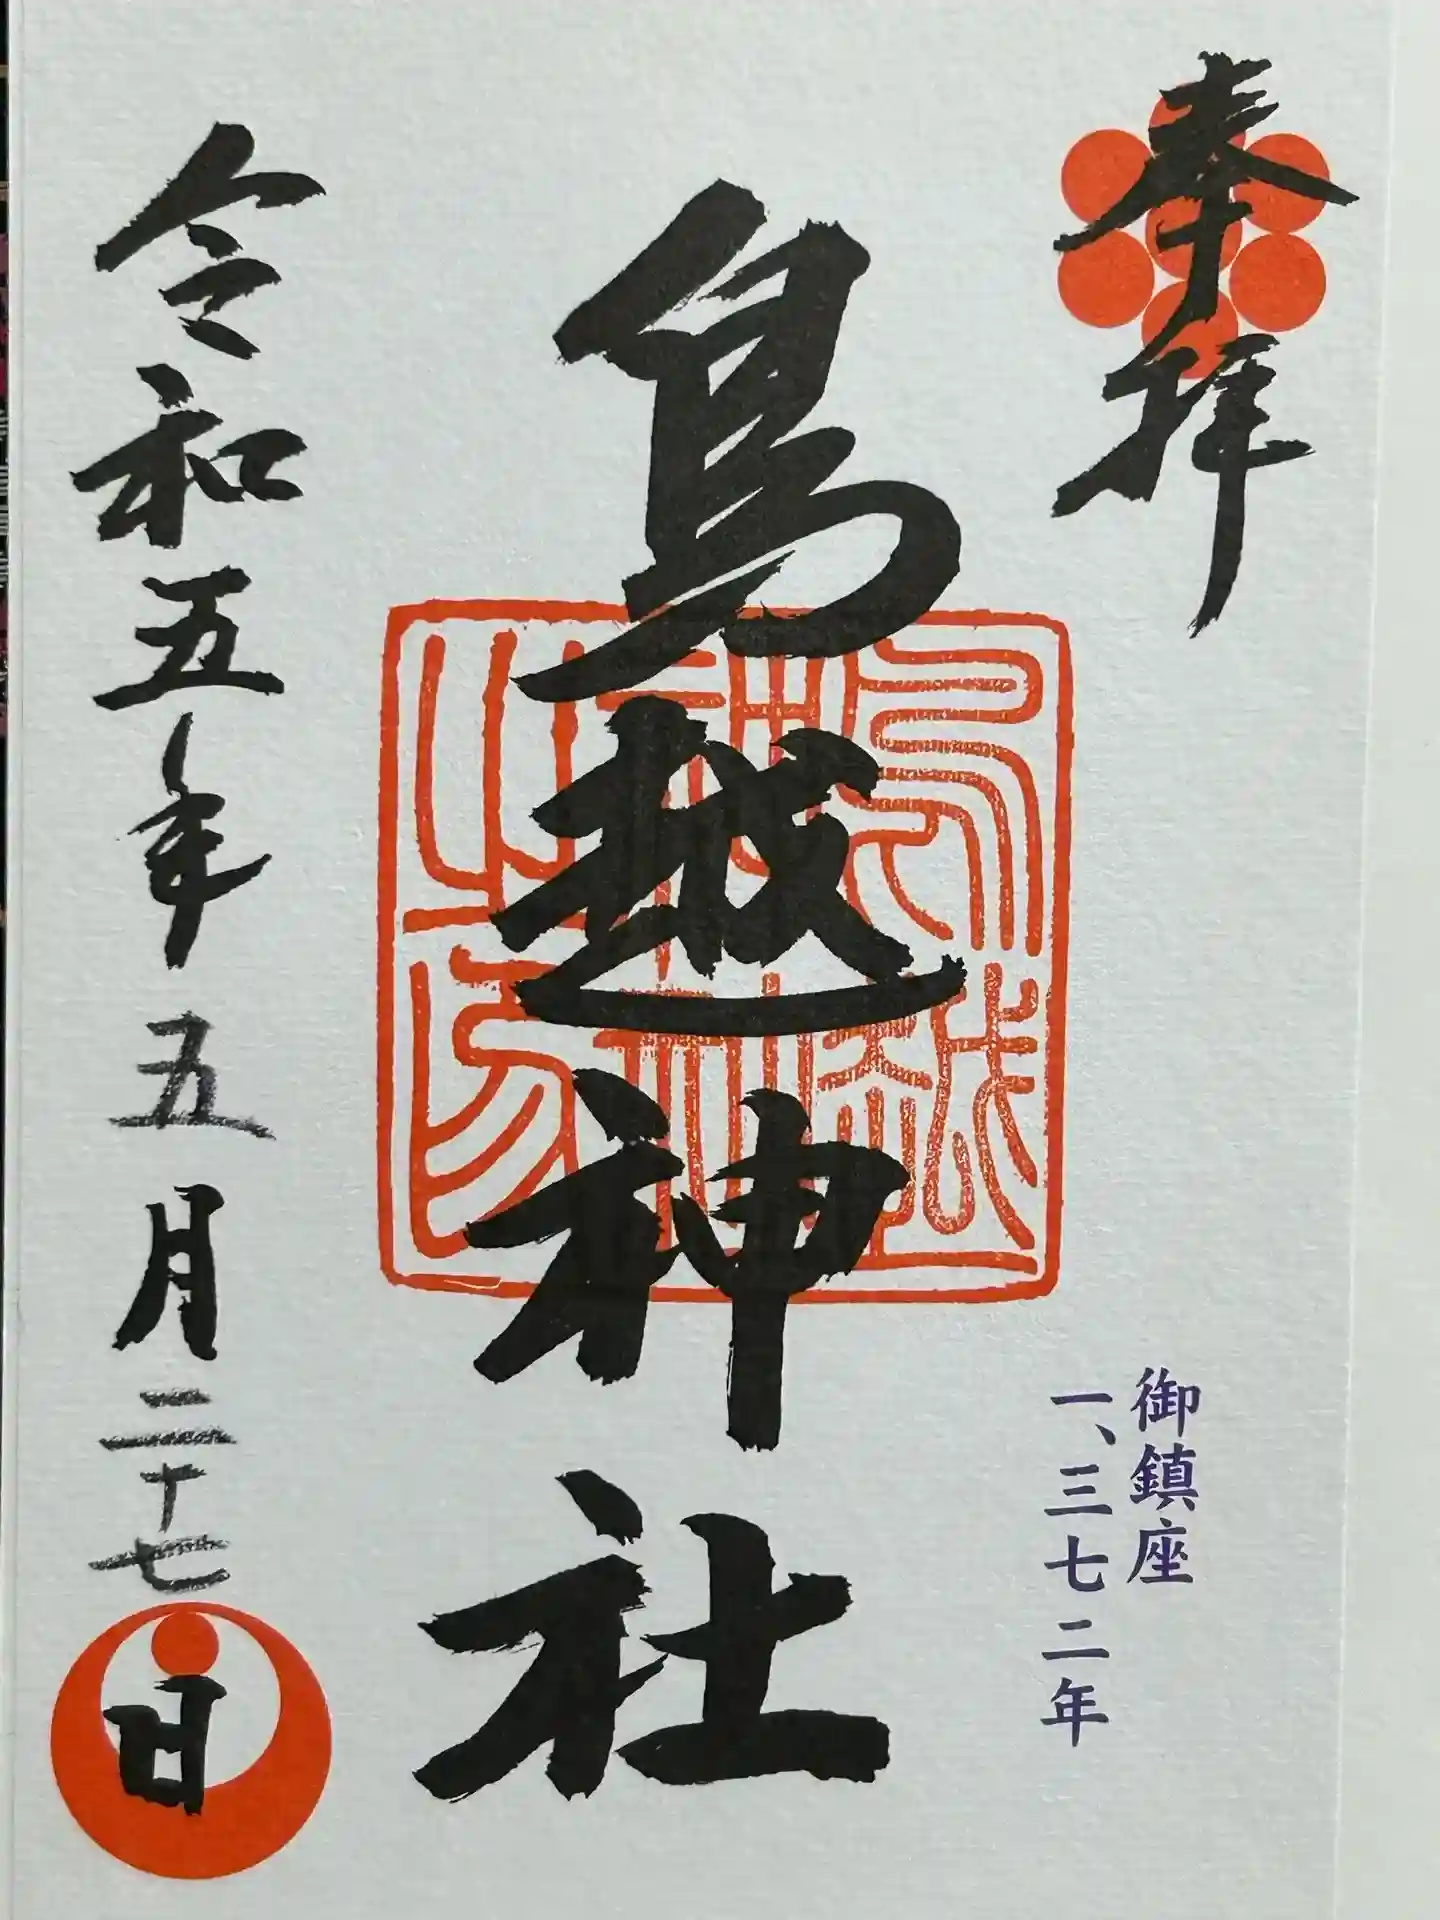 奉拝
御鎮座
一、三七二年
鳥越神社
令和五年五月二十七日